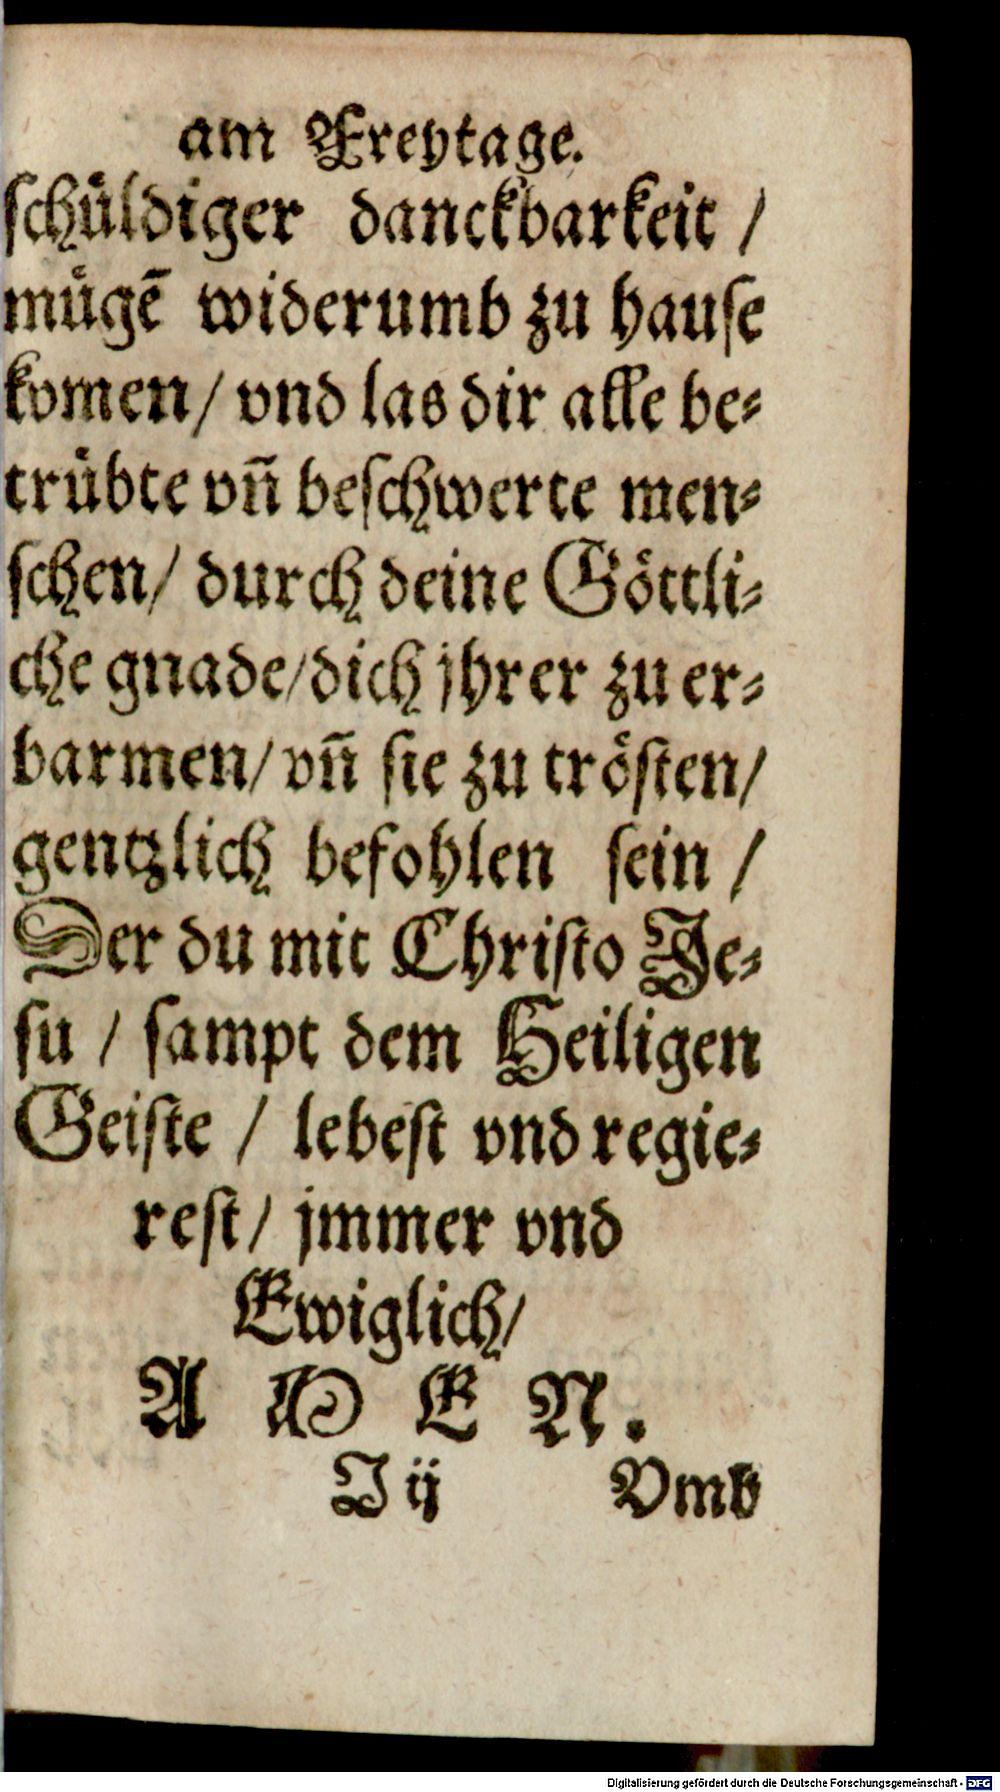 am Freytage.
schuͤldiger danckbarkeit /
muͤgẽ widerumb zu hause
komen/ vnd las dir alle be-
truͤbte vñ beschwerte men-
schen/ durch deine Goͤttli-
che gnade/dich jhrer zu er-
barmen/ vñ sie zu troͤsten/
gentzlich befohlen sein /
Der du mit Christo Je-
su / sampt dem Heiligen
Geiste / lebest vnd regie-
rest/ jmmer vnd
Ewiglich/
A M E N.
J ij Vmb
Digitalisierung gefördert durch die Deutsche Forschungsgemeinschaft - DFG